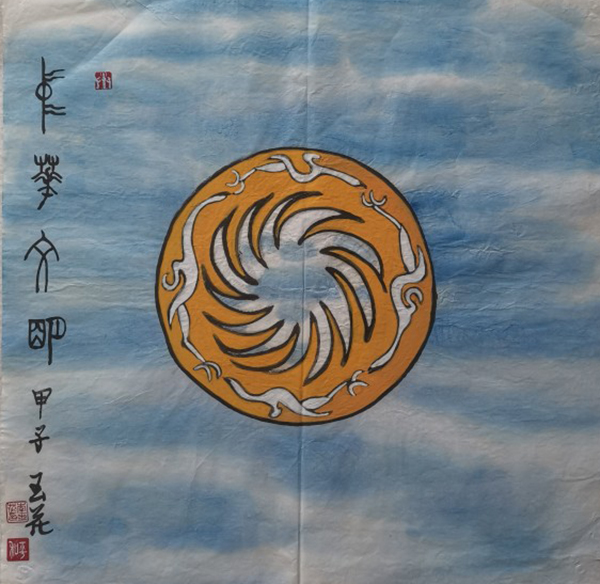 中華文明 甲子 玉花